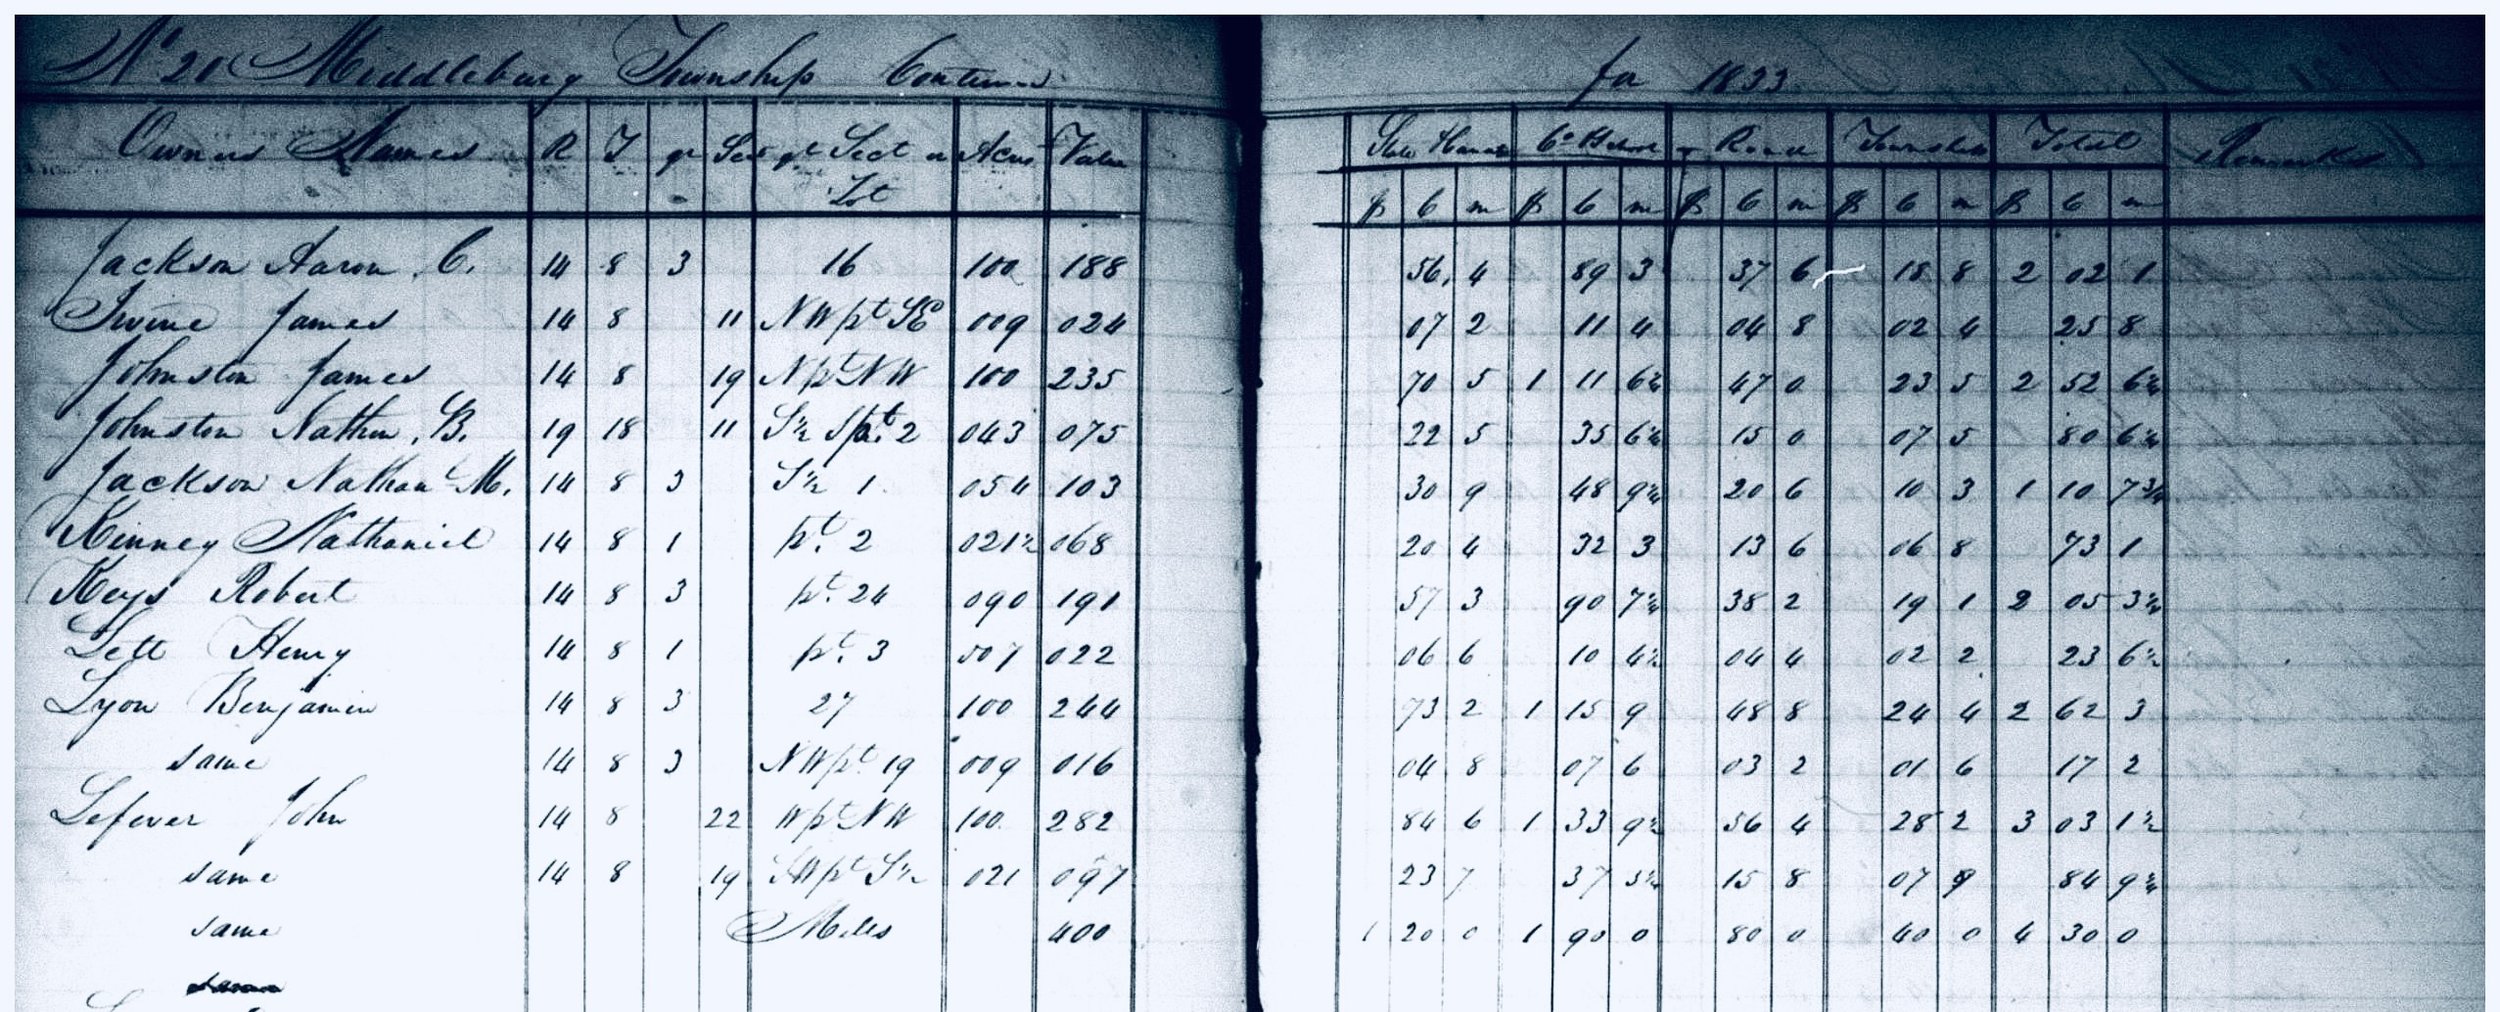 No 21 Middleburg Township Continud for 1833
Owners Names R T qr Sect pt Sect or Acres Value State & Canal Co & School Road Township Total Remarks
Lot $ C m $ C m $ C m $ C m $ C m
Jackson Aaron C. 14 8 3 16 100 188 56, 4 89 3 37 6 18 8 2 02 1
Irvine James 14 8 11 NW pt SE 009 024 07 2 11 4 04 8 02 4 25 8
Johnston James 14 8 19 N pt NW 100 235 70 5 1 11 6¼ 47 0 23 5 2 52 6¼
Johnston Nathan B. 19 18 11 S½ S pt. 2 043 075 22 5 35 6¼ 15 0 07 5 80 6¼
Jackson Nathanl M. 14 8 3 S½ 1 054 103 30 9 48 9¼ 20 6 10 3 1 10 7¾
Kinney Nathaniel 14 8 1 pt. 2 021½ 068 20 4 32 3 13 6 06 8 73 1
Keys Robert 14 8 3 pt. 24 090 191 57 3 90 7¼ 38 2 19 1 2 05 3¼
Lett Henry 14 8 1 pt. 3 007 022 06 6 10 4½ 04 4 02 2 23 6½
Lyon Benjamin 14 8 3 27 100 244 73 2 1 15 9 48 8 24 4 2 62 3
same 14 8 3 NW pt. 19 009 016 04 8 07 6 03 2 01 6 17 2
Lefever John 14 8 22 W pt NW 100 282 84 6 1 33 9½ 56 4 28 2 3 03 1½
same 14 8 19 SW pt S½ 021 097 23 7 37 5¼ 15 8 07 9 84 9¼
same Mills 400 1 20 0 1 90 0 80 0 40 0 4 30 0